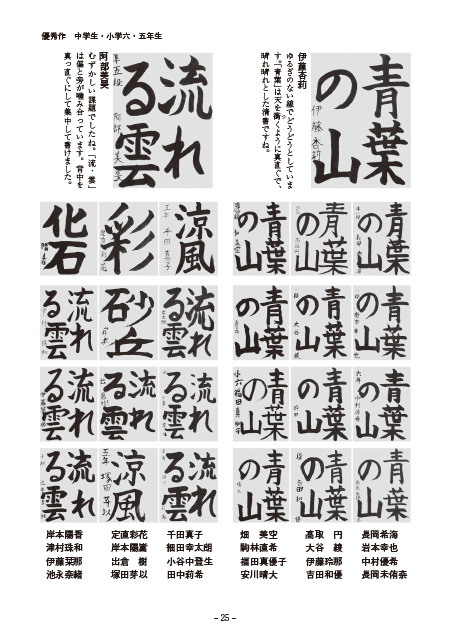 優秀作　中学生・小学六・五年生
青葉
の山
伊藤杏莉
伊藤杏莉
ゆるぎのない線でどうどうとしていま
す。「青葉」は天を衝くように真直ぐで、
晴れ晴れとした清書ですね。
流れ
る雲
準五段
阿部美旻
むずかしい課題でしたね。「流・雲」
は偏と旁が噛み合っています。背中を
真っ直ぐにして集中して書けました。
青葉
の山
青葉
の山
青葉
の山
涼風
五年 千田真子
彩
化石
青葉
の山
青葉
の山
大谷綾
青葉
の山
流れ
る雲
砂丘
流れ
る雲
青葉
の山
六年 中村優希
青葉
の山
青葉
の山
小六 福田真
流れ
る雲
流れ
る雲
流れ
る雲
青葉
の山
青葉
の山
吉田和
青葉
の山
流れ
る雲
涼風
五年 塚田芽以
流れ
る雲
長岡希海
岩本幸也
中村優希
長岡未侑奈
高取　円
大谷　綾
伊藤玲那
吉田和優
畑　美空
駒林直希
福田真優子
安川晴大
千田真子
細田幸太朗
小谷中登生
田中莉希
定直彩花
岸本陽嵩
出倉　樹
塚田芽以
岸本陽香
津村珠和
伊藤栞那
池永奈緒
– 25 –